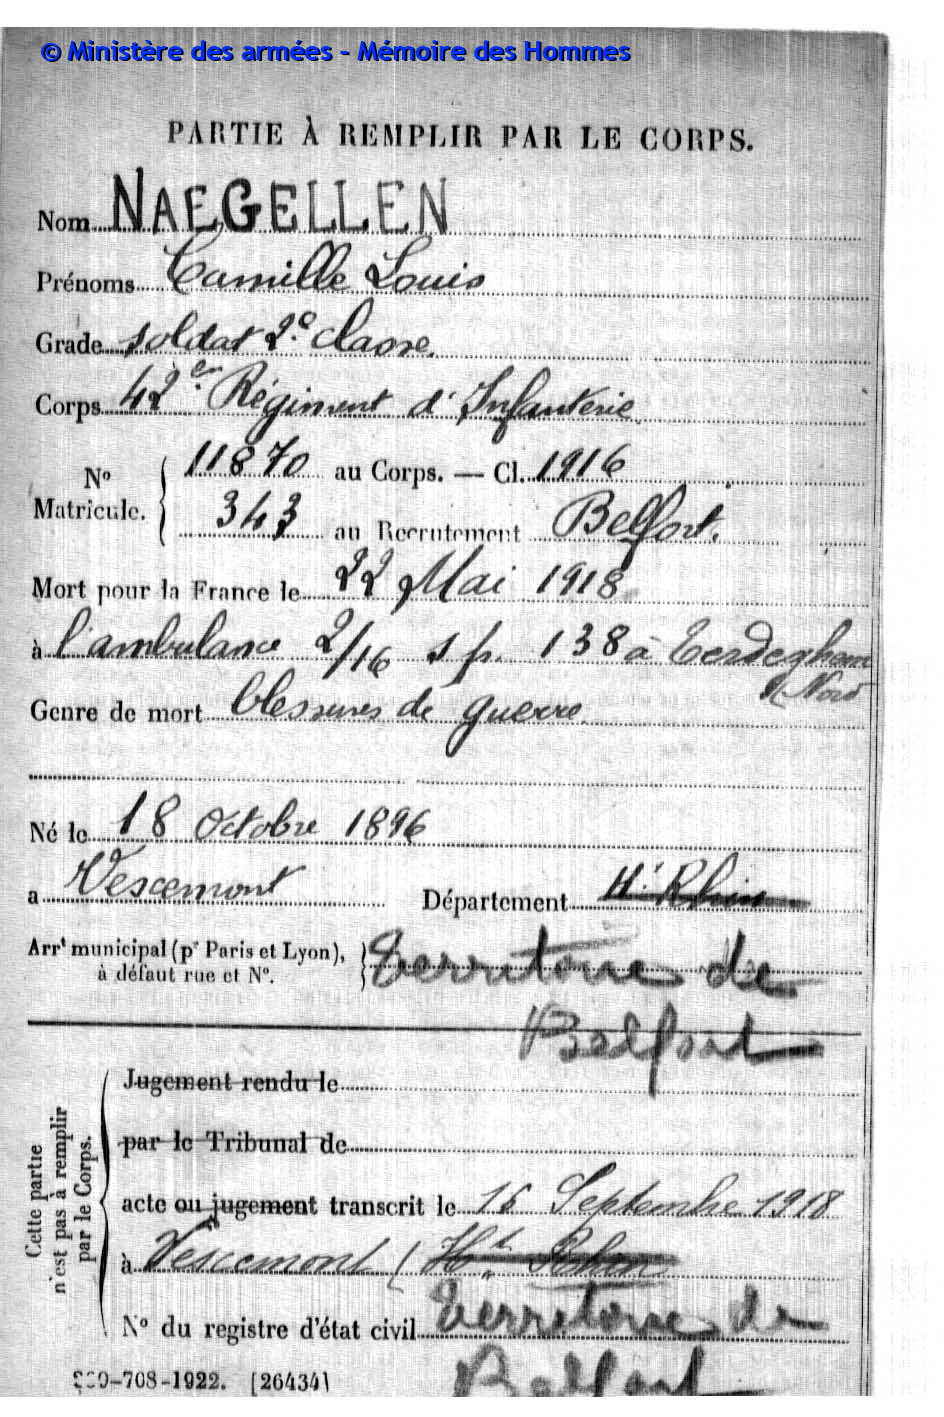 © Ministère des armées - Mémoire des Hommes
PARTIE À REMPLIR PAR LE CORPS.
Nom NAEGELLEN
Prénoms Camille Louis
Grade soldat 2e classe.
Corps 42e Régiment d'Infanterie
No Matricule. { 11870 au Corps. — Cl. 1916
343 au Recrutement Belfort.
Mort pour la France le 22 Mai 1918
à l'ambulance 2/16 s p. 138 à Terdeghem
Nord
Genre de mort blessures de guerre
Né le 18 Octobre 1896
a Vescemont Département Ht Rhin
Arrt municipal (pr Paris et Lyon),
à défaut rue et No. } Territoire de
Belfort
Cette partie n'est pas à remplir par le Corps.
Jugement rendu le
par le Tribunal de
acte ou jugement transcrit le 15 Septembre 1918
à Vescemont (Ht Rhin
No du registre d'état civil Territoire de
Belfort
-708-1922. [26434]